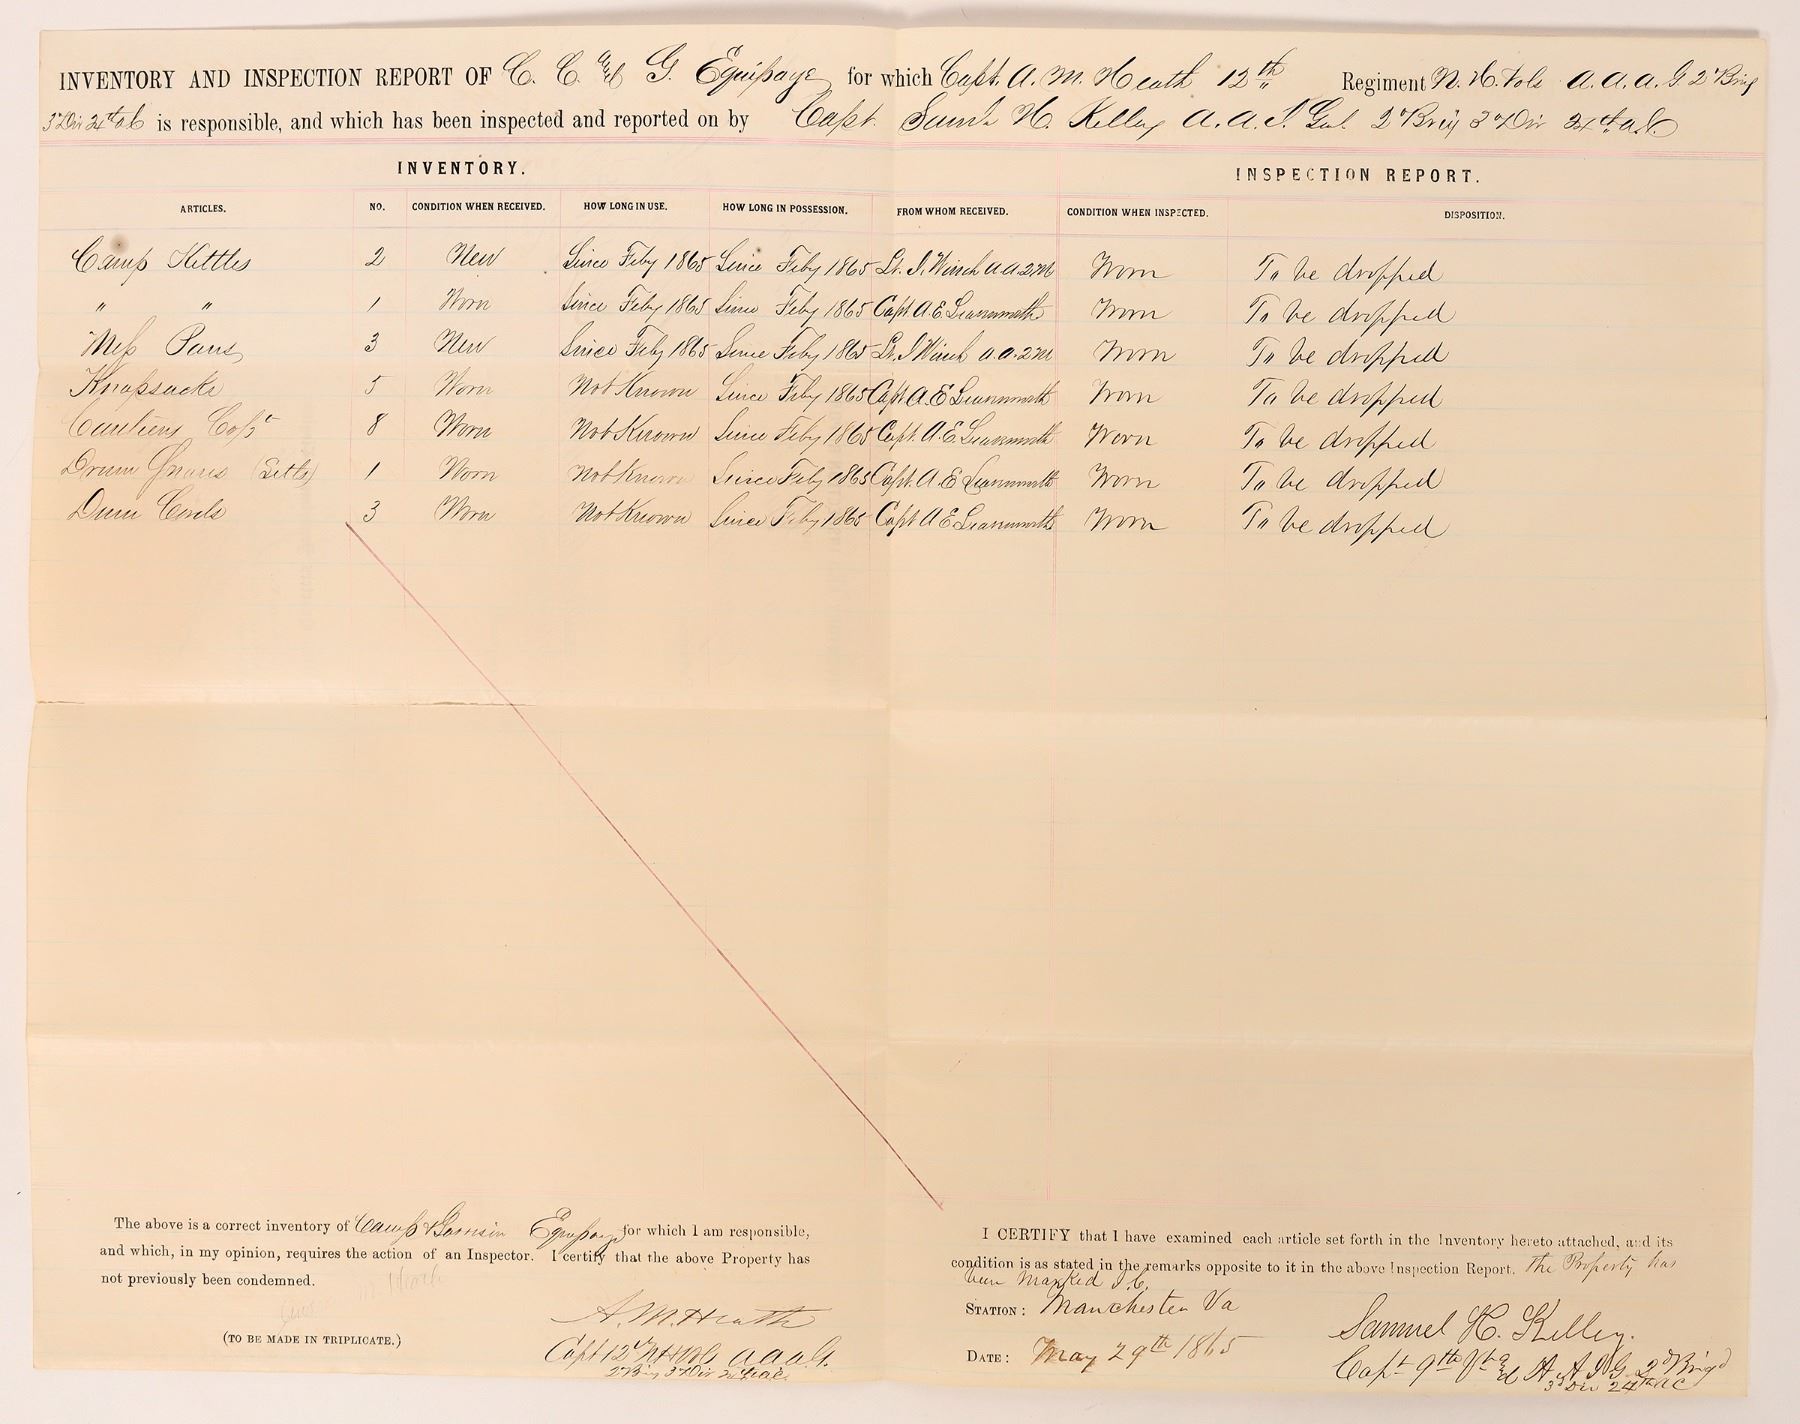 INVENTORY AND INSPECTION REPORT OF C. C. and G. Equipage for which Capt. A. M. Heath 12th Regiment N. H. Vols A. A. A. G. 2d Brig
3d Div 24th A C is responsible, and which has been inspected and reported on by Capt. Saml H. Kelley A. A. I. Genl. 2d Brig 3d Div 24th A. C.
INVENTORY. INSPECTION REPORT.
ARTICLES. NO. CONDITION WHEN RECEIVED. HOW LONG IN USE. HOW LONG IN POSSESSION. FROM WHOM RECEIVED. CONDITION WHEN INSPECTED. DISPOSITION.
Camp Kettles 2 New Since Feby 1865 Since Feby 1865 Lt. I. Winch A A 2 M Worn To be dropped
" " 1 Worn Since Feby 1865 Since Feby 1865 Capt A. E. Worn To be dropped
Mess Pans 3 New Since Feby 1865 Since Feby 1865 Lt. I Winch A A 2 M Worn To be dropped
Knapsacks 5 Worn Not Known Since Feby 1865 Capt A. E. Worn To be dropped
Canteens 8 Worn Not Known Since Feby 1865 Capt. A. E. Worn To be dropped
Drum Snares (Setts) 1 Worn Not Known Since Feby 1865 Capt. A. E. Worn To be dropped
Drum Cords 3 Worn Not Known Since Feby 1865 Capt A E Worn To be dropped
The above is a correct inventory of Camp & Garrison Equipage for which I am responsible,
and which, in my opinion, requires the action of an Inspector. I certify that the above Property has
not previously been condemned.
A. M. Heath
Capt 12th N H Vols A A A G.
2d Brig 3d Div 24th A C.
(TO BE MADE IN TRIPLICATE.)
I CERTIFY that I have examined each article set forth in the Inventory hereto attached, and its
condition is as stated in the remarks opposite to it in the above Inspection Report. The Property has
been Marked I. C.
STATION: Manchester Va
DATE: May 29th 1865
Samuel H. Kelley.
Capt 9th Vt and A. A. I. G. 2d Brigd
3d Div 24th A C